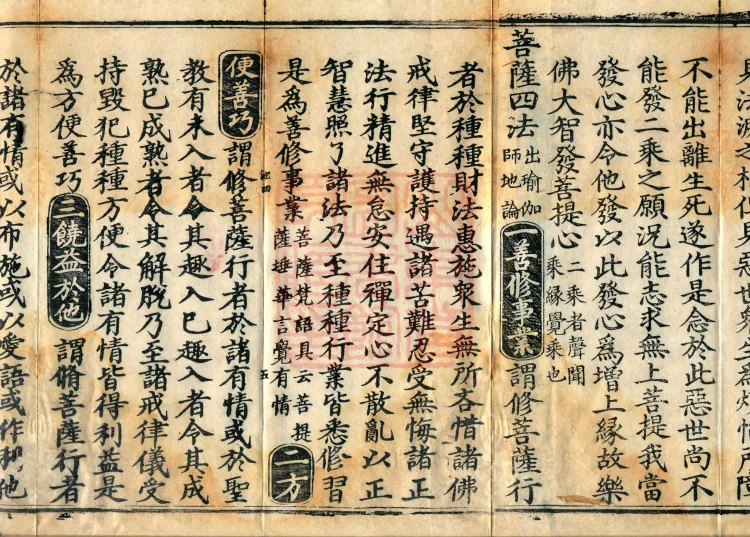 不能出離生死遂作是念於此惡世尚不
能發二乘之願況能志求無上菩提我當
發心亦令他發以此發心爲增上緣故樂
佛大智發菩提心二乘者聲聞乘緣覺乘也
菩薩四法出瑜伽師地論一善修事業謂修菩薩行
者於種種財法惠施衆生無所吝惜諸佛
戒律堅守護持遇諸苦難忍受無悔諸正
法行精進無怠安住禪定心不散亂以正
智慧照了諸法乃至種種行業皆悉修習
是爲善修事業菩薩梵語具云菩提薩埵華言覺有情二方
四 五
便善巧謂修菩薩行者於諸有情或於聖
教有未入者令其趣入巳趣入者令其成
熟巳成熟者令其解脫乃至諸戒律儀受
持毀犯種種方便令諸有情皆得利益是
爲方便善巧三饒益於他謂脩菩薩行者
於諸有情或以布施或以愛語或作利他